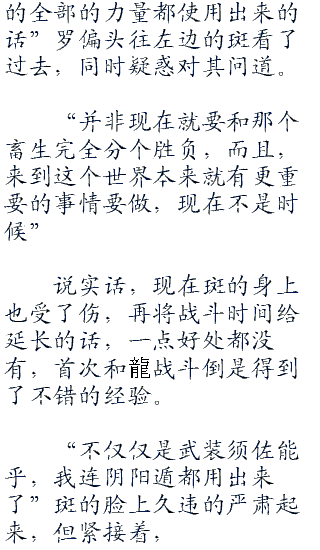 的全部的力量都使用出来的
话”罗偏头往左边的斑看了
过去，同时疑惑对其问道。
“并非现在就要和那个
畜生完全分个胜负，而且，
来到这个世界本来就有更重
要的事情要做，现在不是时
候”
说实话，现在斑的身上
也受了伤，再将战斗时间给
延长的话，一点好处都没
有，首次和龍战斗倒是得到
了不错的经验。
“不仅仅是武装须佐能
乎，我连阴阳遁都用出来
了”斑的脸上久违的严肃起
来，但紧接着，